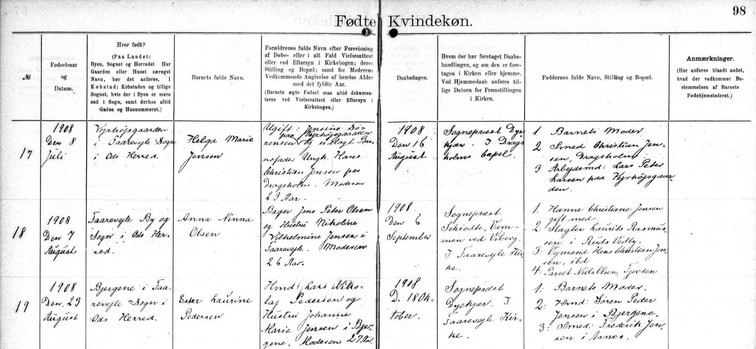 98
Fødte Kvindekøn.
№
Fødselsaar
og
Datum.
Hvor født?
(Paa Landet:
Byen, Sognet og Herredet Har
Gaarden eller Huset særegent
Navn, bør det anføres. I
Købstad: Købstaden og tillige
Sognet, hvis der i Byen er mere
end 1 Sogn, samt derhos altid
Gaden og Husnummeret.)
Barnets fulde Navn.
Forældrenes fulde Navn efter Forevisning
af Daabs- eller i alt Fald Vielsesattest
eller ved Eftersyn i Kirkebogen; deres
Stilling og Bopæl; samt for Moderens
Vedkommende Angivelse af hendes Alder
med det fyldte Aar.
(Barnets ægte Fødsel maa altid dokumenteres
ved Vielsesattest eller Eftersyn i
Kirkebogen.)
Daabsdagen.
Hvem der har foretaget Daabshandlingen,
og om den er foretagen
i Kirken eller hjemme.
Ved Hjemmedaab anføres tillige
Datum for Fremstillingen
i Kirken.
Faddernes fulde Navn, Stilling og Bopæl.
Anmærkninger.
(Her anføres blandt andet,
hvad der vedkommer Bestemmelsen
af Barnets
Fødehjemsted.)
17
1908
Den 8
Juli
i Faarevejle Sogn
i Ods Herred.
Helga Marie
Jensen
Ungk. Hans
Christian Jensen paa
Dragsholm. Moderen
23 Aar.
1908
Den 16
August
Sognepræst Dyekjær.
I Dragsholms
Capel.
1. Barnets Moder
2. Smed Christian Jensen,
Dragsholm
3. Arbejdsmd. Lars Peter
Larsen paa
18
1908
Den 7
August
Faarevejle By og
Sogn i Ods Herred.
Anna Ninna
Olsen
Bager Jens Peter Olsen
og Hustru Nikoline
Vilhelmine Jensen i
Faarevejle. Moderen
26 Aar.
1908
Den 6
September
Sognepræst
Viborg.
I Faarevejle Kirke.
1. Hanne Christiane Jensen
gift med
2. Slagter Laurids Rasmussen
i
3. Hans Christian Jensen,
ibd.
4.
19
1908
Den 23
August
Bjergene i Faarevejle
Sogn i
Ods Herred.
Ester Laurine
Pedersen
Hmd. Lars Nikolaj
Pedersen og
Hustru Johanne
Marie Jensen i Bjergene.
Moderen
1908
D. 18 Oktober.
Sognepræst
Dyekjær. I
Faarevejle Kirke.
1. Barnets Moder.
2. Hmd. Søren Peter
Jensen i Bjergene.
3. Smed. Frederik Jensen
i Asnæs.